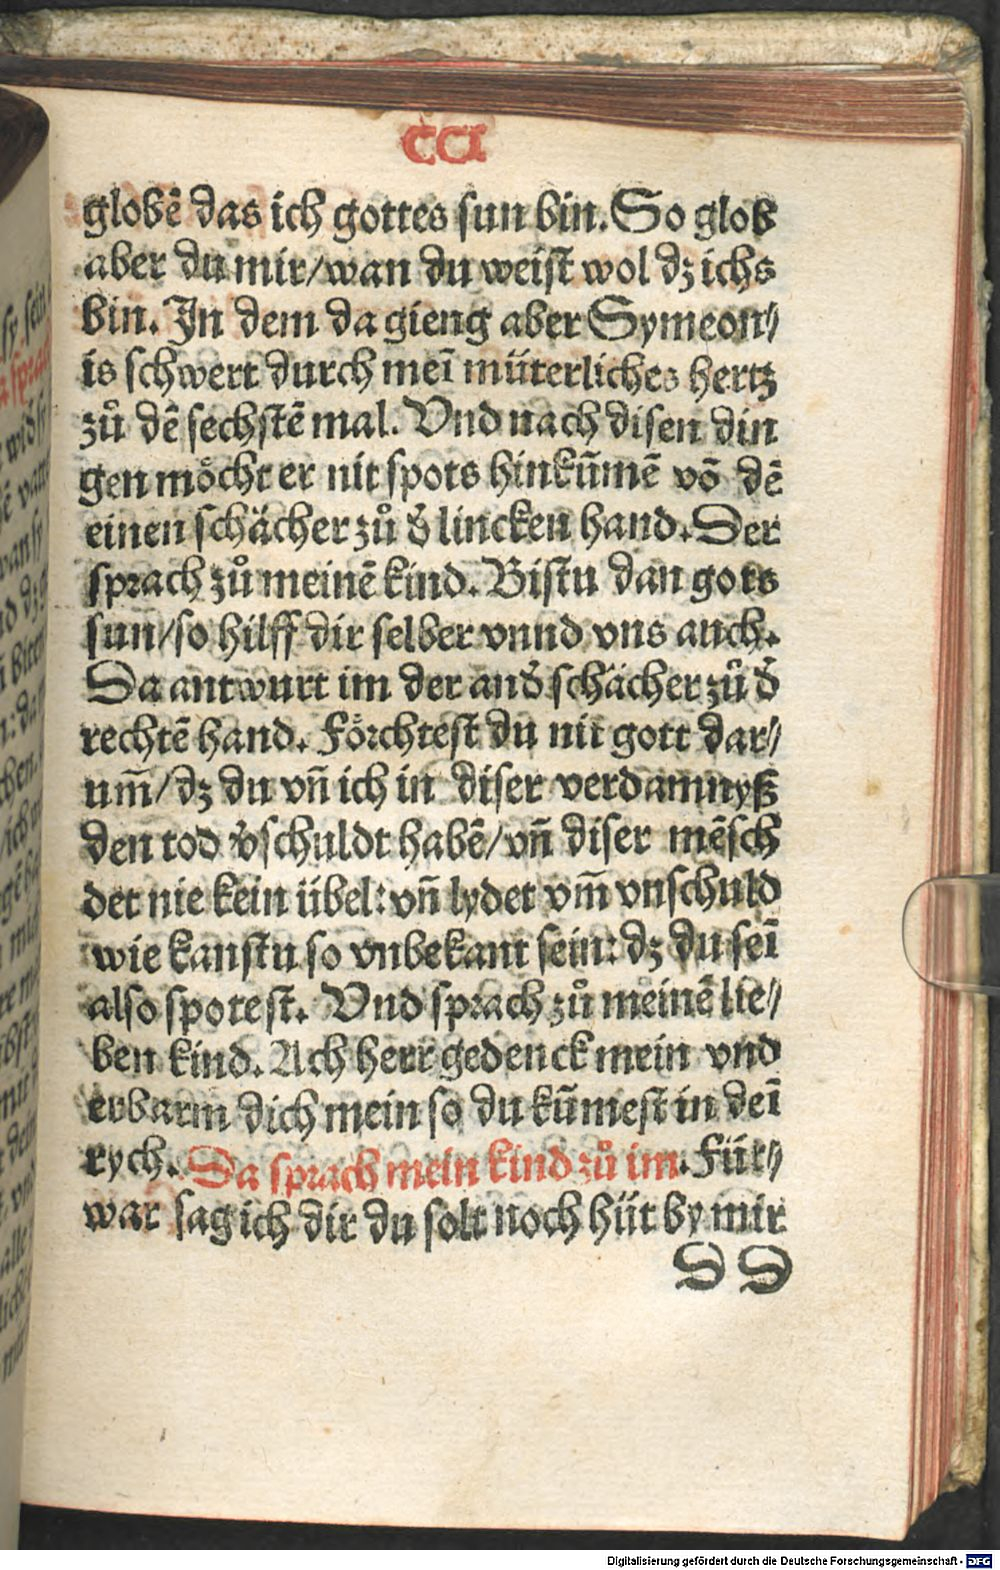 CCI
globē das ich gottes sun bin. So glob
aber du mir/wan du weist wol dz ichs
bin. In dem da gieng aber Symeon⸗
is schwert durch meī müterliches hertz
zů dē sechstē mal. Vnd nach disen din
gen moͤcht er nit spots hinkūmē vō dē
einen schächer zů d̛ lincken hand. Der
sprach zů meinē kind. Bistu dan gots
sun/so hilff dir selber vnnd vns auch.
Da antwurt im der and̛ schächer zů d̛
rechtē hand. Foͤrchtest du nit gott dar⸗
um̄/dz du vn̄ ich in diser verdamnyß
den tod v̛schuldt habē/vn̄ diser mēsch
det nie kein übel: vn̄ lydet vm̄ vnschuld
wie kanstu so vnbekant sein: dz du seī
also spotest. Vnd sprach zů meinē lie⸗
ben kind. Ach herr gedenck mein vnd
erbarm dich mein so du kūmest in deī
rych. Da sprach mein kind zů im. Für⸗
war sag ich dir du solt noch hüt by mir
D D
Digitalisierung gefördert durch die Deutsche Forschungsgemeinschaft - DFG